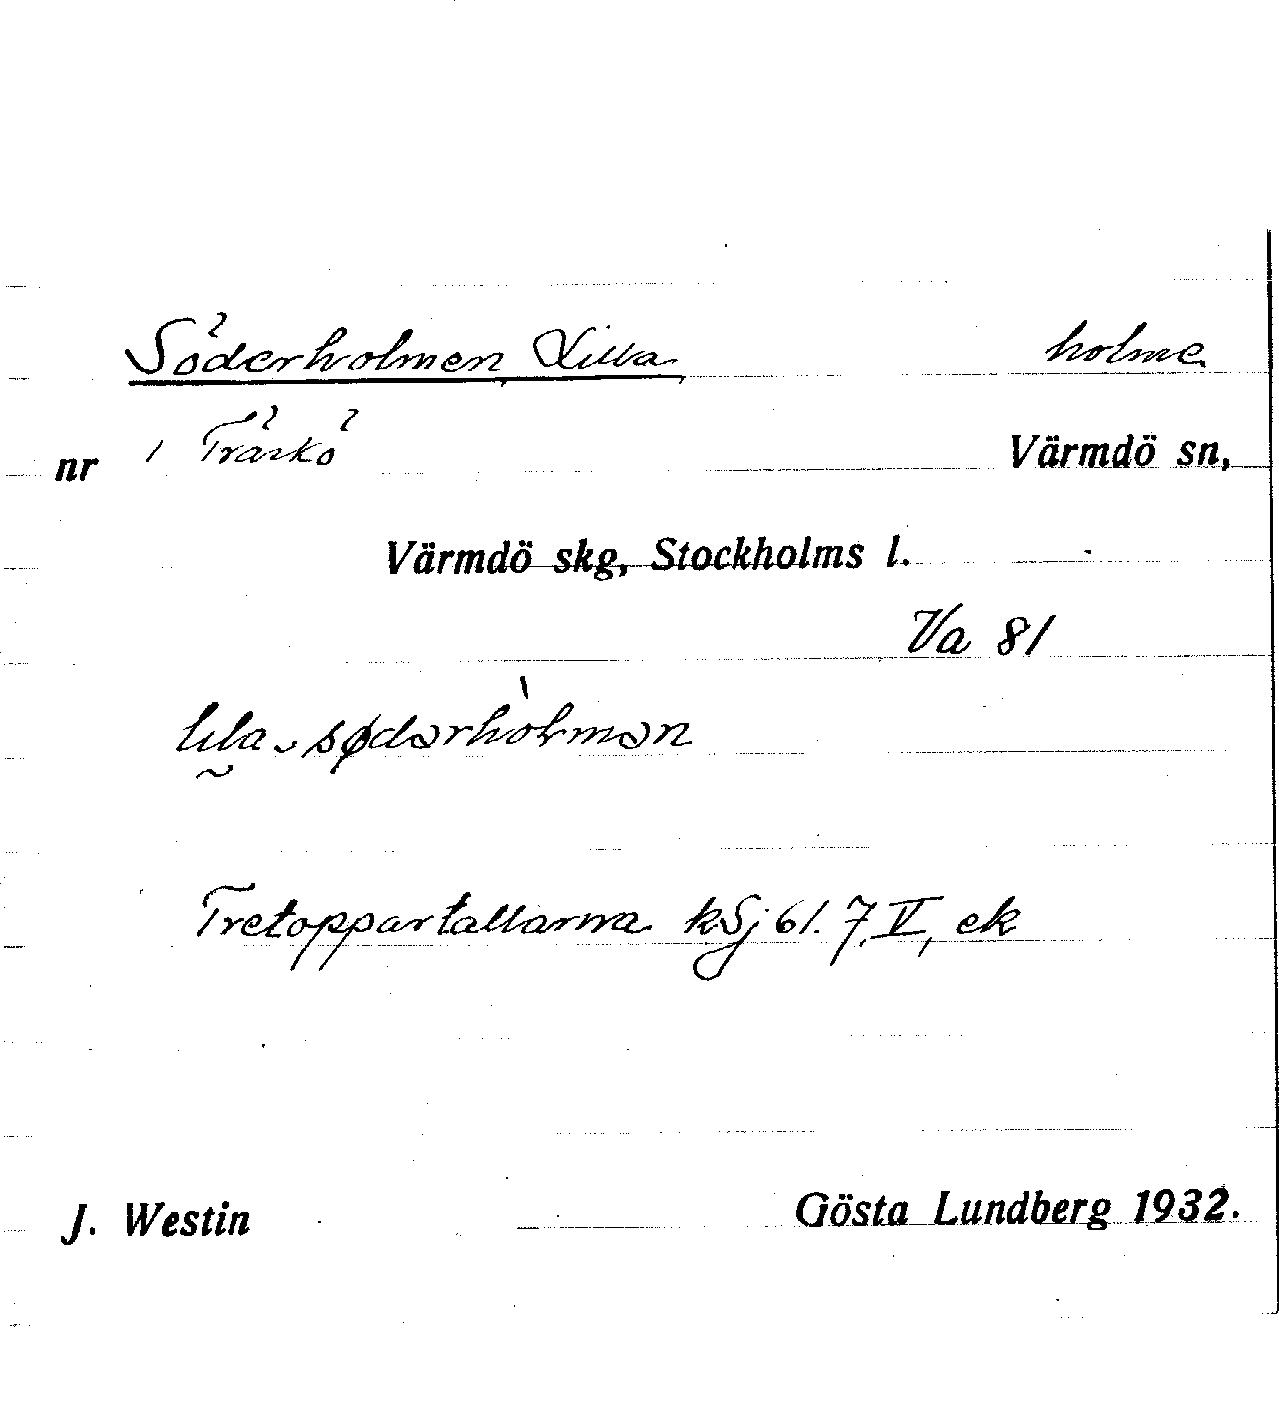 Söderholmen, Lilla holme
nr 1 Träskö Värmdö sn,
Värmdö skg, Stockholms l.
Va 81
lila sødərhòlmən
Tretoppartallarna kSj 61. 7, V, ek
J. Westin Gösta Lundberg 1932.